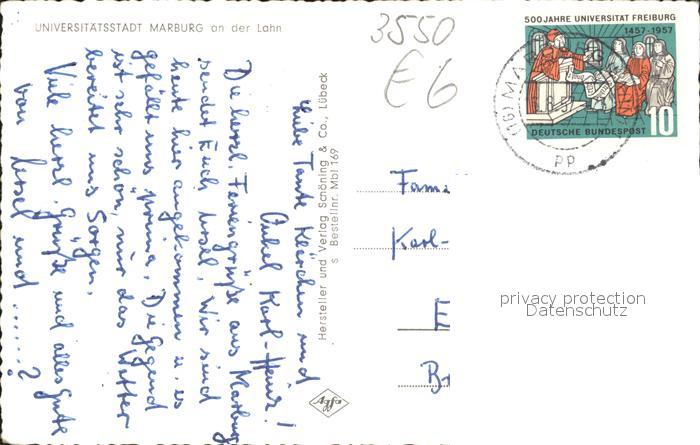 UNIVERSITÄTSSTADT MARBURG an der Lahn
3550
€ 6
500 JAHRE UNIVERSITÄT FREIBURG
1457-1957
DEUTSCHE BUNDESPOST 10
(16) MAR
PP
Liebe Tante Klärchen und
Onkel Karl-Heinz!
Die herzl. Feriengrüße aus Marburg
sendet Euch Ursel. Wir sind
heute hier angekommen u. es
gefällt uns prima. Die Gegend
ist sehr schön, nur das Wetter
bereitet uns Sorgen.
Viele herzl. Grüße und alles Gute
von Ursel und ......?
Hersteller und Verlag Schöning & Co., Lübeck
s Bestellnr. Mbl 169
Agfa
Fam
Karl-
E
Br
privacy protection
Datenschutz